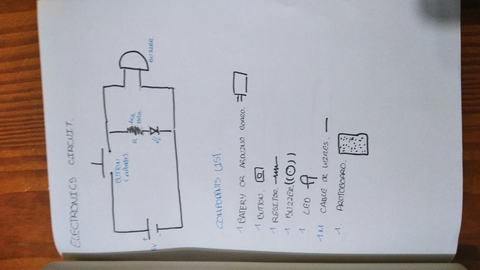 ELECTRONICS CIRCUIT.
BUZZER
R
BUTTON
+
COMPONENTS LIST.
1 BATERY OR ARDUINO BOARD.
1 BUTTON.
1 RESISTOR
1 BUZZER
1 LED
1M CABLE OR WIRES.
1. PROTOBOARD.